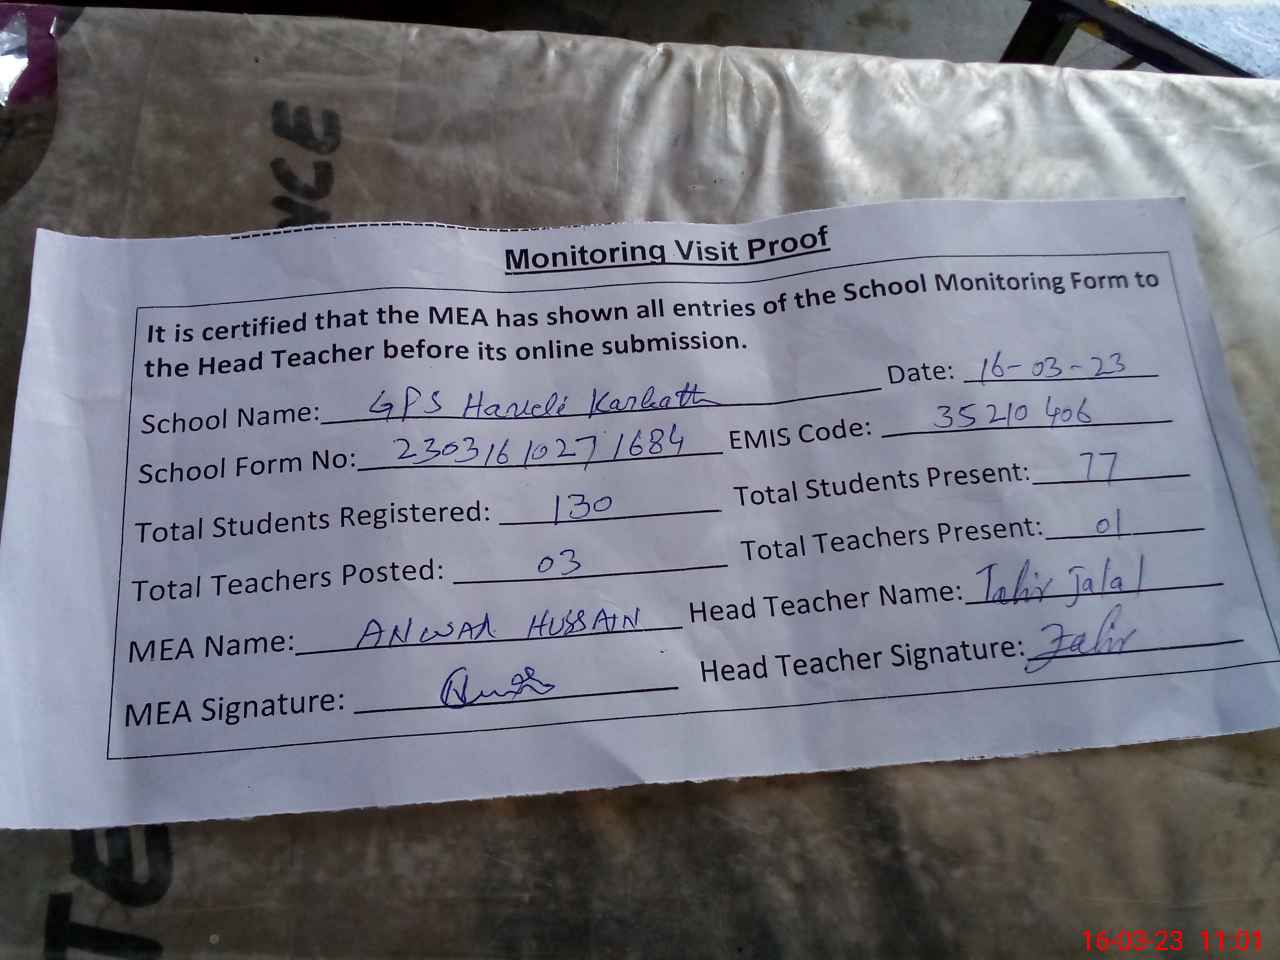 NCE
Monitoring Visit Proof
It is certified that the MEA has shown all entries of the School Monitoring Form to
the Head Teacher before its online submission.
School Name: GPS Haveli Karkath Date: 16-03-23
School Form No: 2303161027 1684 EMIS Code: 35210 406
Total Students Registered: 130 Total Students Present: 77
Total Teachers Posted: 03 Total Teachers Present: 01
MEA Name: ANWAR HUSSAIN Head Teacher Name: Tahir Jalal
MEA Signature: Head Teacher Signature: Tahir
TE
16-03-23 11:01